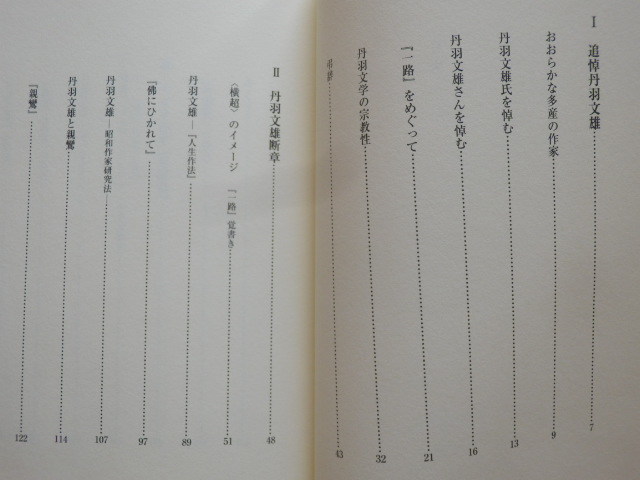 I 追悼丹羽文雄……7
おおらかな多産の作家……9
丹羽文雄氏を悼む……13
丹羽文雄さんを悼む……16
『一路』をめぐって……21
丹羽文学の宗教性……32
弔辞……43
II 丹羽文雄断章……48
〈横超〉のイメージ 『一路』覚書き……51
丹羽文雄―『人生作法』……89
『佛にひかれて』……97
丹羽文雄―昭和作家研究法……107
丹羽文雄と親鸞……114
『親鸞』……122